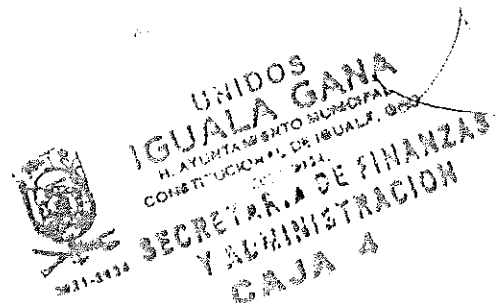 UNIDOS
IGUALA GANA
H. AYUNTAMIENTO MUNICIPAL
CONSTITUCIONAL DE IGUALA, GRO
2021-2024
SECRETARIA DE FINANZAS
Y ADMINISTRACION
CAJA 4